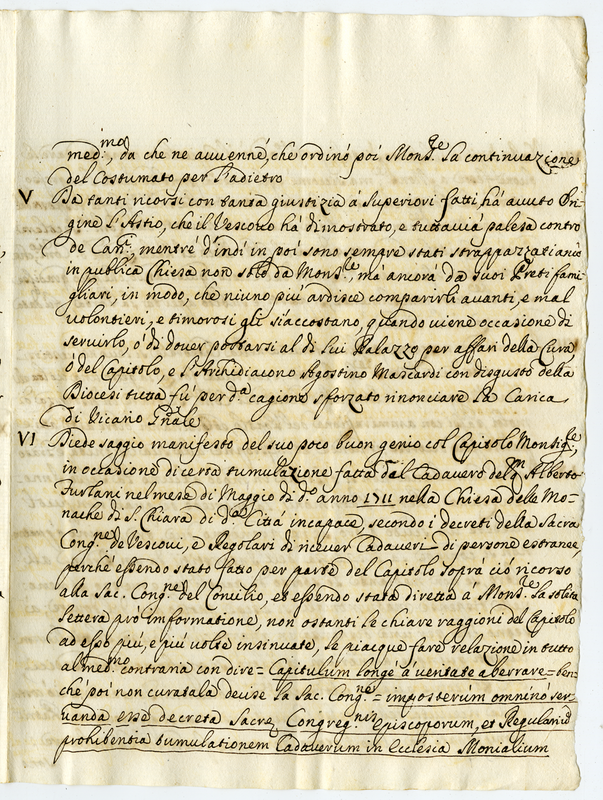 med.mo, da che ne auuenne, che ordinò poi Mons.re la continuazione
del Costumato per l'adietro
V Da tanti ricorsi con tanta giustizia á Superiori fatti, há auuto Ori-
gine l'Astio, che il Vescouo há dimostrato, e tuttauia palesa contro
de Can.ci, mentre d'indi in poi sono sempre stati strappazzati anco
in publica Chiesa non solo da Mons.re, má ancora da suoi Preti fami-
gliari, in modo, che niuno piú ardisce comparirli auanti, e mal
volontieri, e timorosi gli s'accostano, quando uiene occasione di
seruirlo, ó di douer portarsi al di lui Palazzo per affari della Cura,
ó del Capitolo, e l'Archidiacono Agostino Mascardi con disgusto della
Diocesi tutta fú per d.a cagione sforzato rinonciare la Carica
di Vicario G̃nale
VI Diede saggio manifesto del suo poco buon genio col Capitolo Monsig.re
in occasione di certa tumulazione fatta del Cadauero del q.m Alberto
Furlani nel mese di Maggio di d.o anno 1711 nella Chiesa delle Mo=
nache di S. Chiara di d.a Cittá incapace, secondo i decreti della Sacra
Cong.ne de Vescoui, e Regolari di riceuer Cadaueri di persone estranee,
perche essendo stato fatto per parte del Capitolo soprá ció ricorso
alla Sac. Cong.ne del Concilio, et essendo stata diretta á Mons.re la solita
lettera pró informatione, non ostanti le chiare raggioni del Capitolo
ad esso piú, e piú uolte insinuate, le piacque fare relazione in tutto
al med.mo contraria con dire= Capitulum longe á ueritate aberrare= ben
ché poi non curatala decise la Sac. Cong.ne = imposterúm omnino ser-
uanda esse decreta Sacrę Congreg.nis Episcoporum, et Regularium
prohibentia tumulationem Cadauerum in Ecclesia Monialium